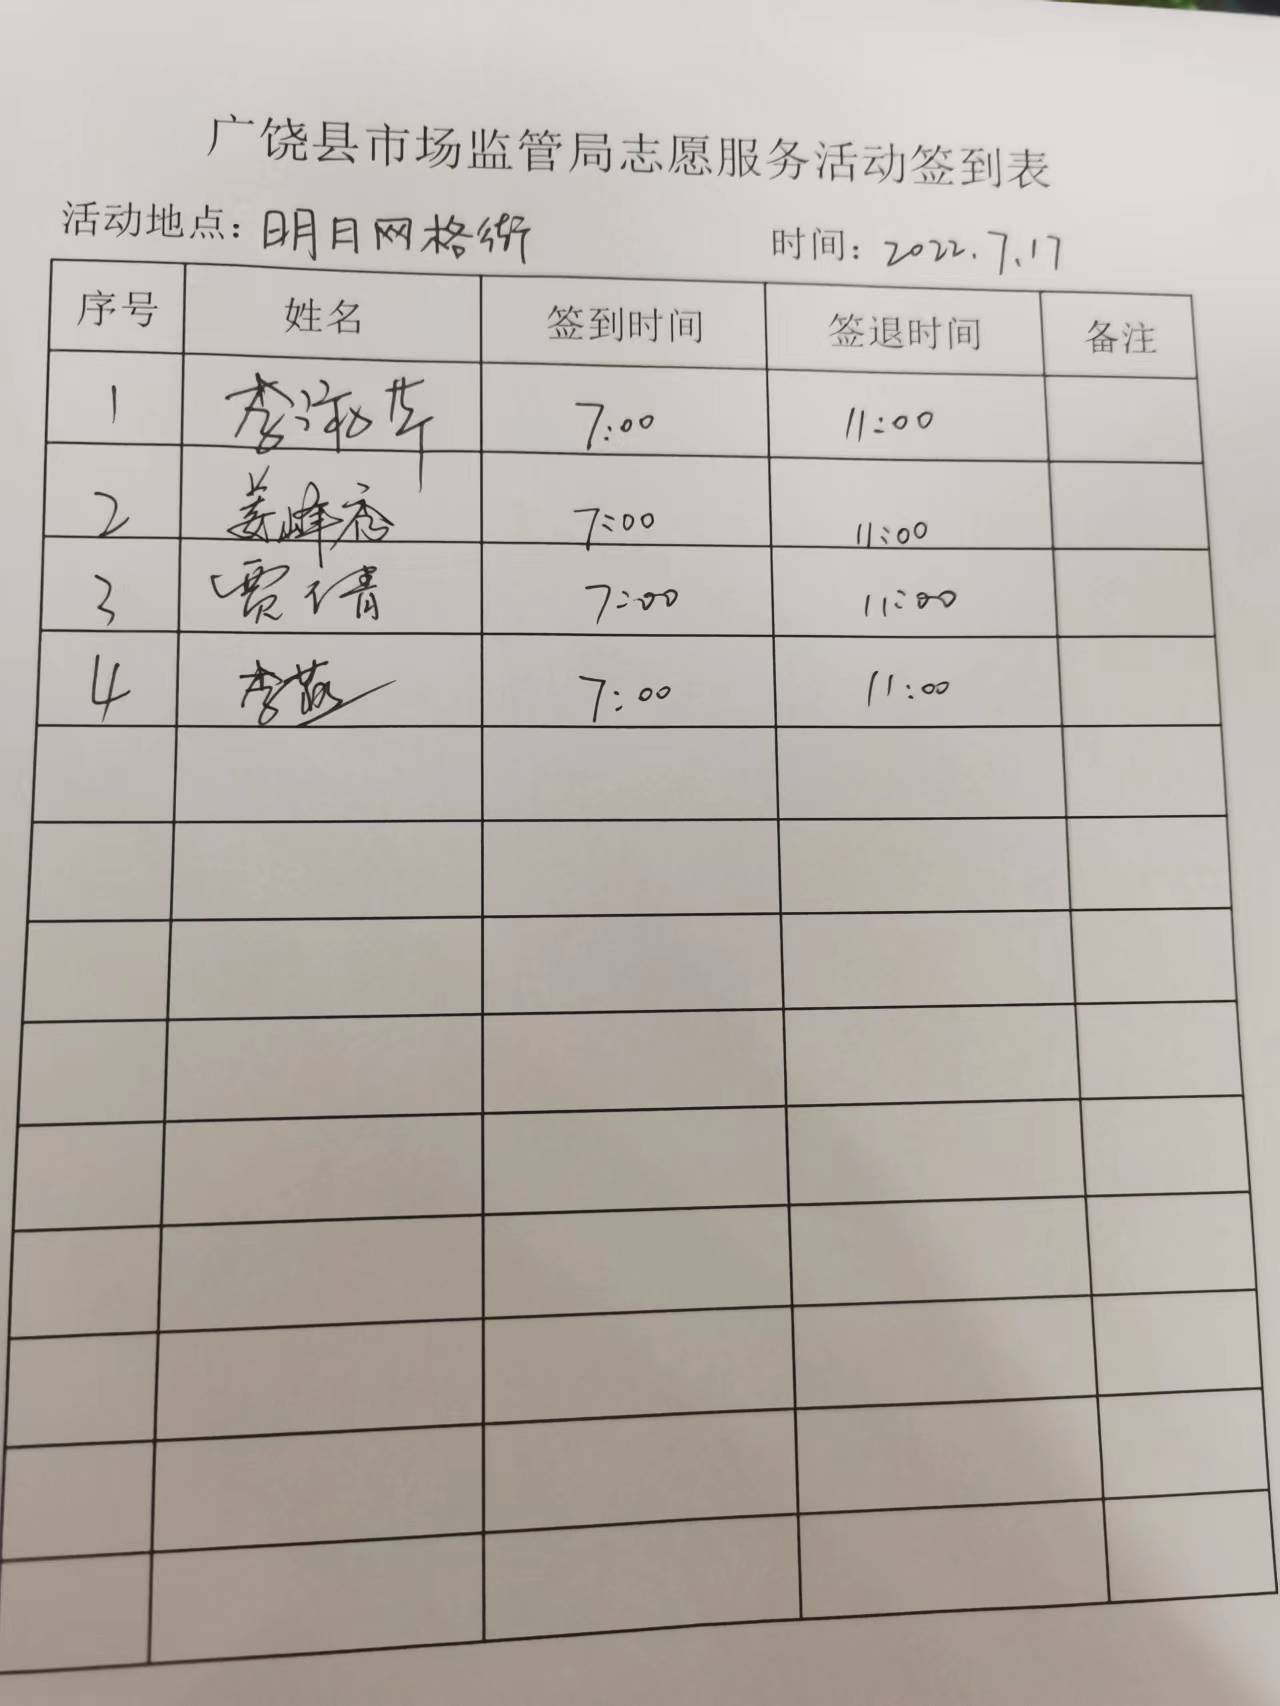 广饶县市场监管局志愿服务活动签到表
活动地点：明月网格街 时间：2022.7.17
序号 姓名 签到时间 签退时间 备注
1 李淑华 7:00 11:00
2 姜峰秀 7:00 11:00
3 贾倩 7:00 11:00
4 李燕 7:00 11:00